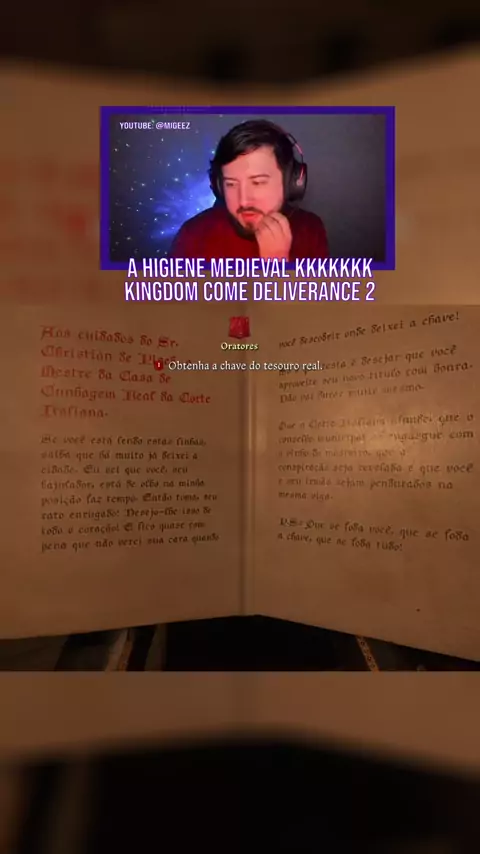 YOUTUBE: @MIGEEZ
A HIGIENE MEDIEVAL KKKKKKK
KINGDOM COME DELIVERANCE 2
Oratores
Obtenha a chave do tesouro real.
Aos cuidados do Sr.
Christian de
Mestre da Casa de
Cunhagem Real da Corte
Italiana.
Se você está lendo estas linhas,
saiba que há muito já deixei a
cidade. Eu sei que você, seu
bajulador, está de olho na minha
posição faz tempo. Então tome, seu
rato enrugado! Desejo-lhe isso de
todo o coração! E fico quase com
pena que não verei sua cara quando
você descobrir onde deixei a chave!
resta é desejar que você
aproveite seu novo título com honra.
Não vai durar muito mesmo.
Que a Corte Italiana afunde, que o
conselho municipal se engasgue com
a
conspiração seja revelada e que você
e seu lende sejam pendurados na
mesma viga.
PS: Que se foda você, que se foda
a chave, que se foda tudo!